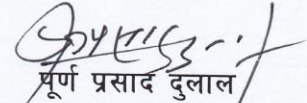 पूर्ण प्रसाद दुलाल